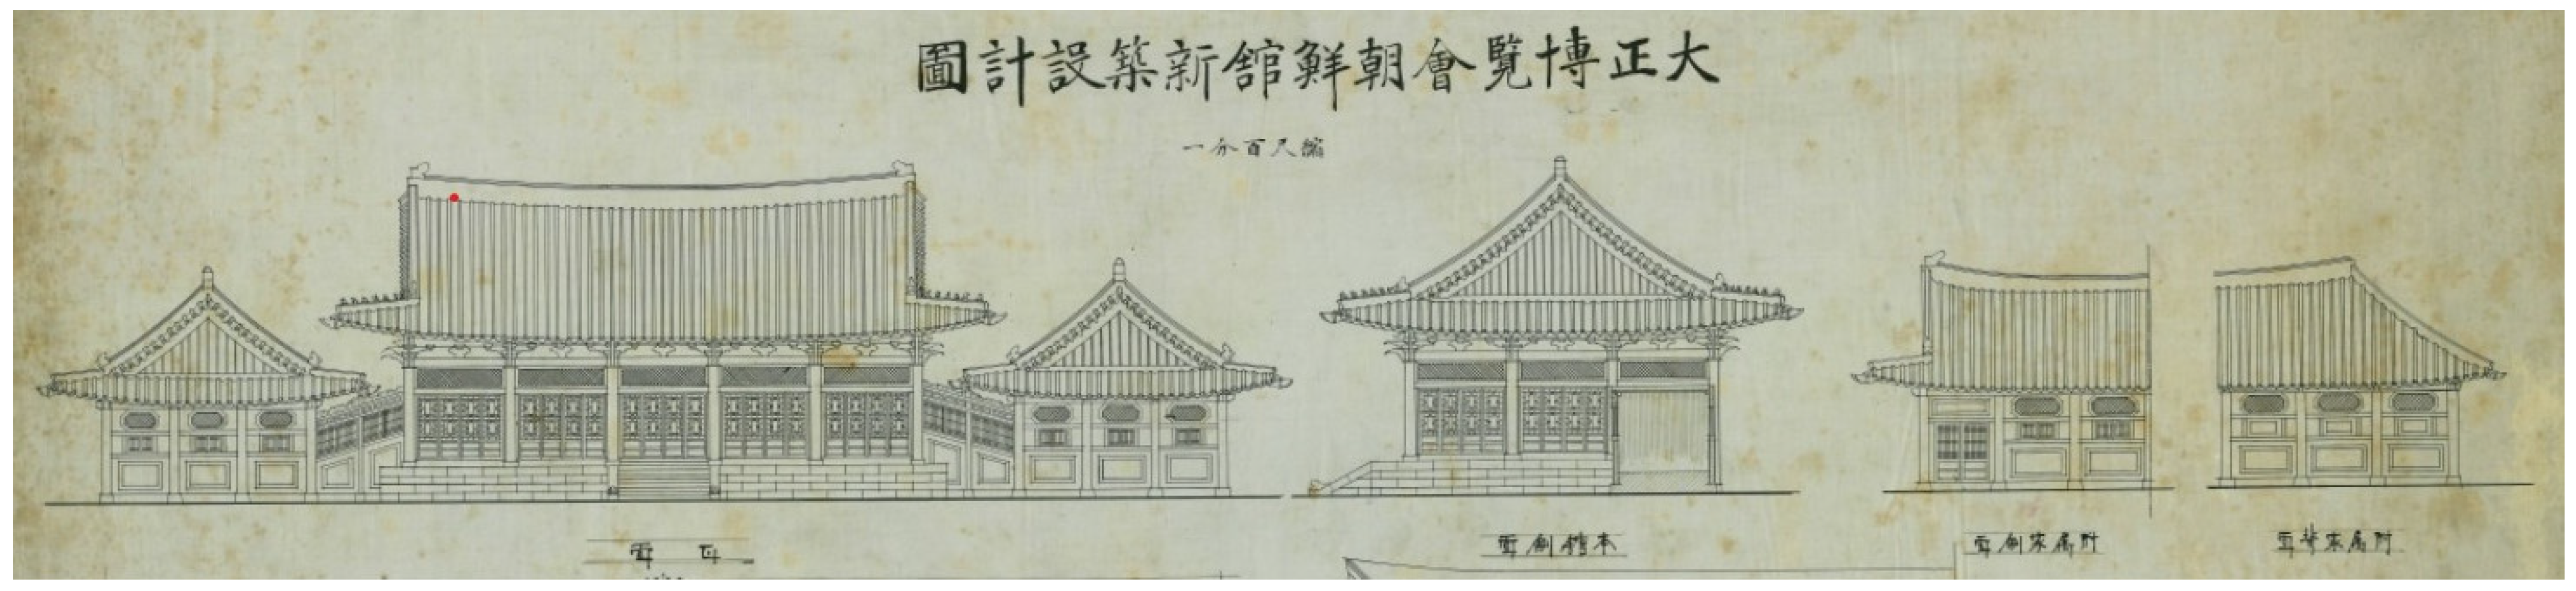 大正博覧會朝鮮館新築設計圖
縮尺百分一
正面
本館側面
附属家側面
附属家背面